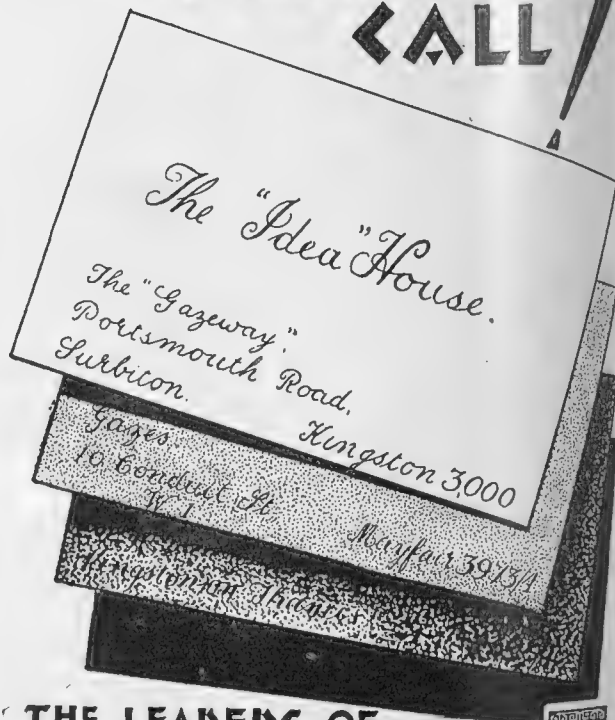 CALL!
The "Idea" House.
The "Gazeway".
Portsmouth Road,
Surbiton.
Kingston 3,000
Gazes.
10 Conduit St.
W. 1.
Mayfair 3973/4
Kingston on Thames
THE LEADERS OF